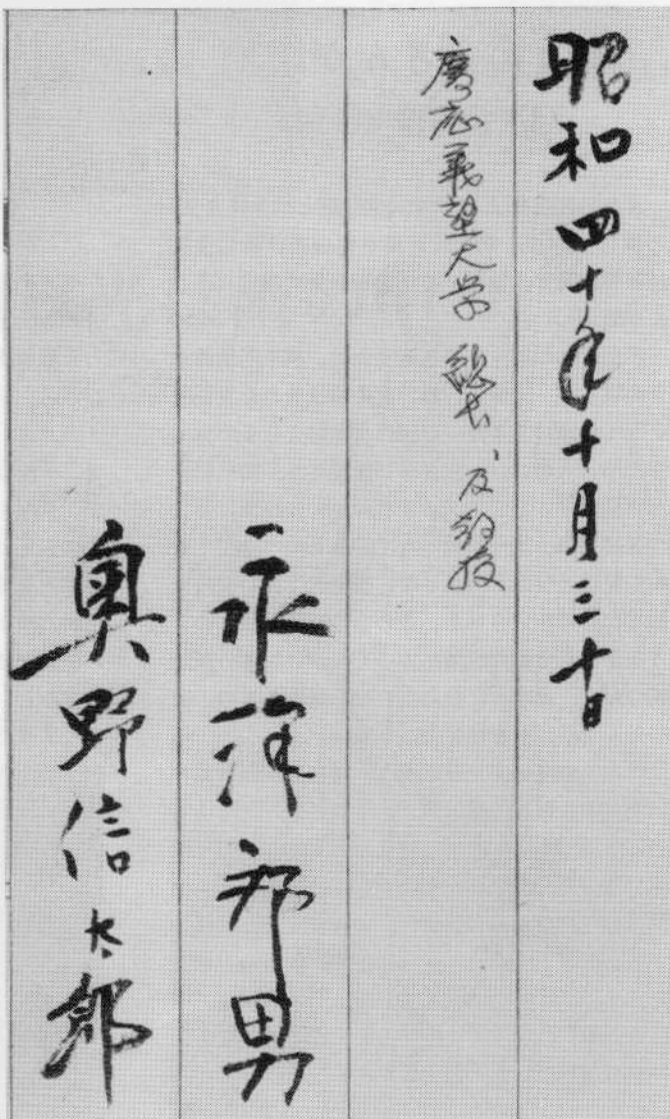 昭和四十年十月三十日
慶応義塾大学 総長、及教授
永沢邦男
奥野信太郎